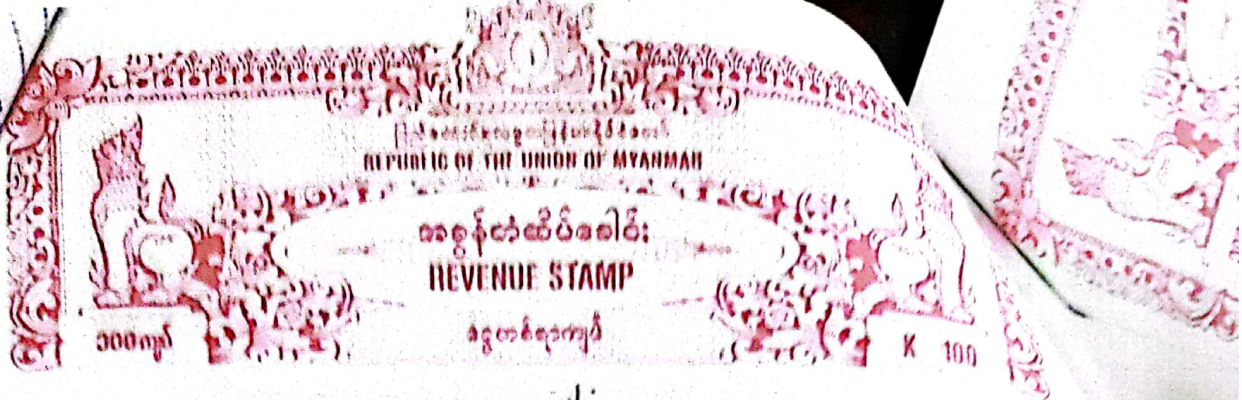 ပြည်ထောင်စုသမ္မတမြန်မာနိုင်ငံတော်
REPUBLIC OF THE UNION OF MYANMAR
အခွန်တံဆိပ်ခေါင်း
REVENUE STAMP
ငွေတစ်ရာကျပ်
၁၀၀ကျပ် K 100